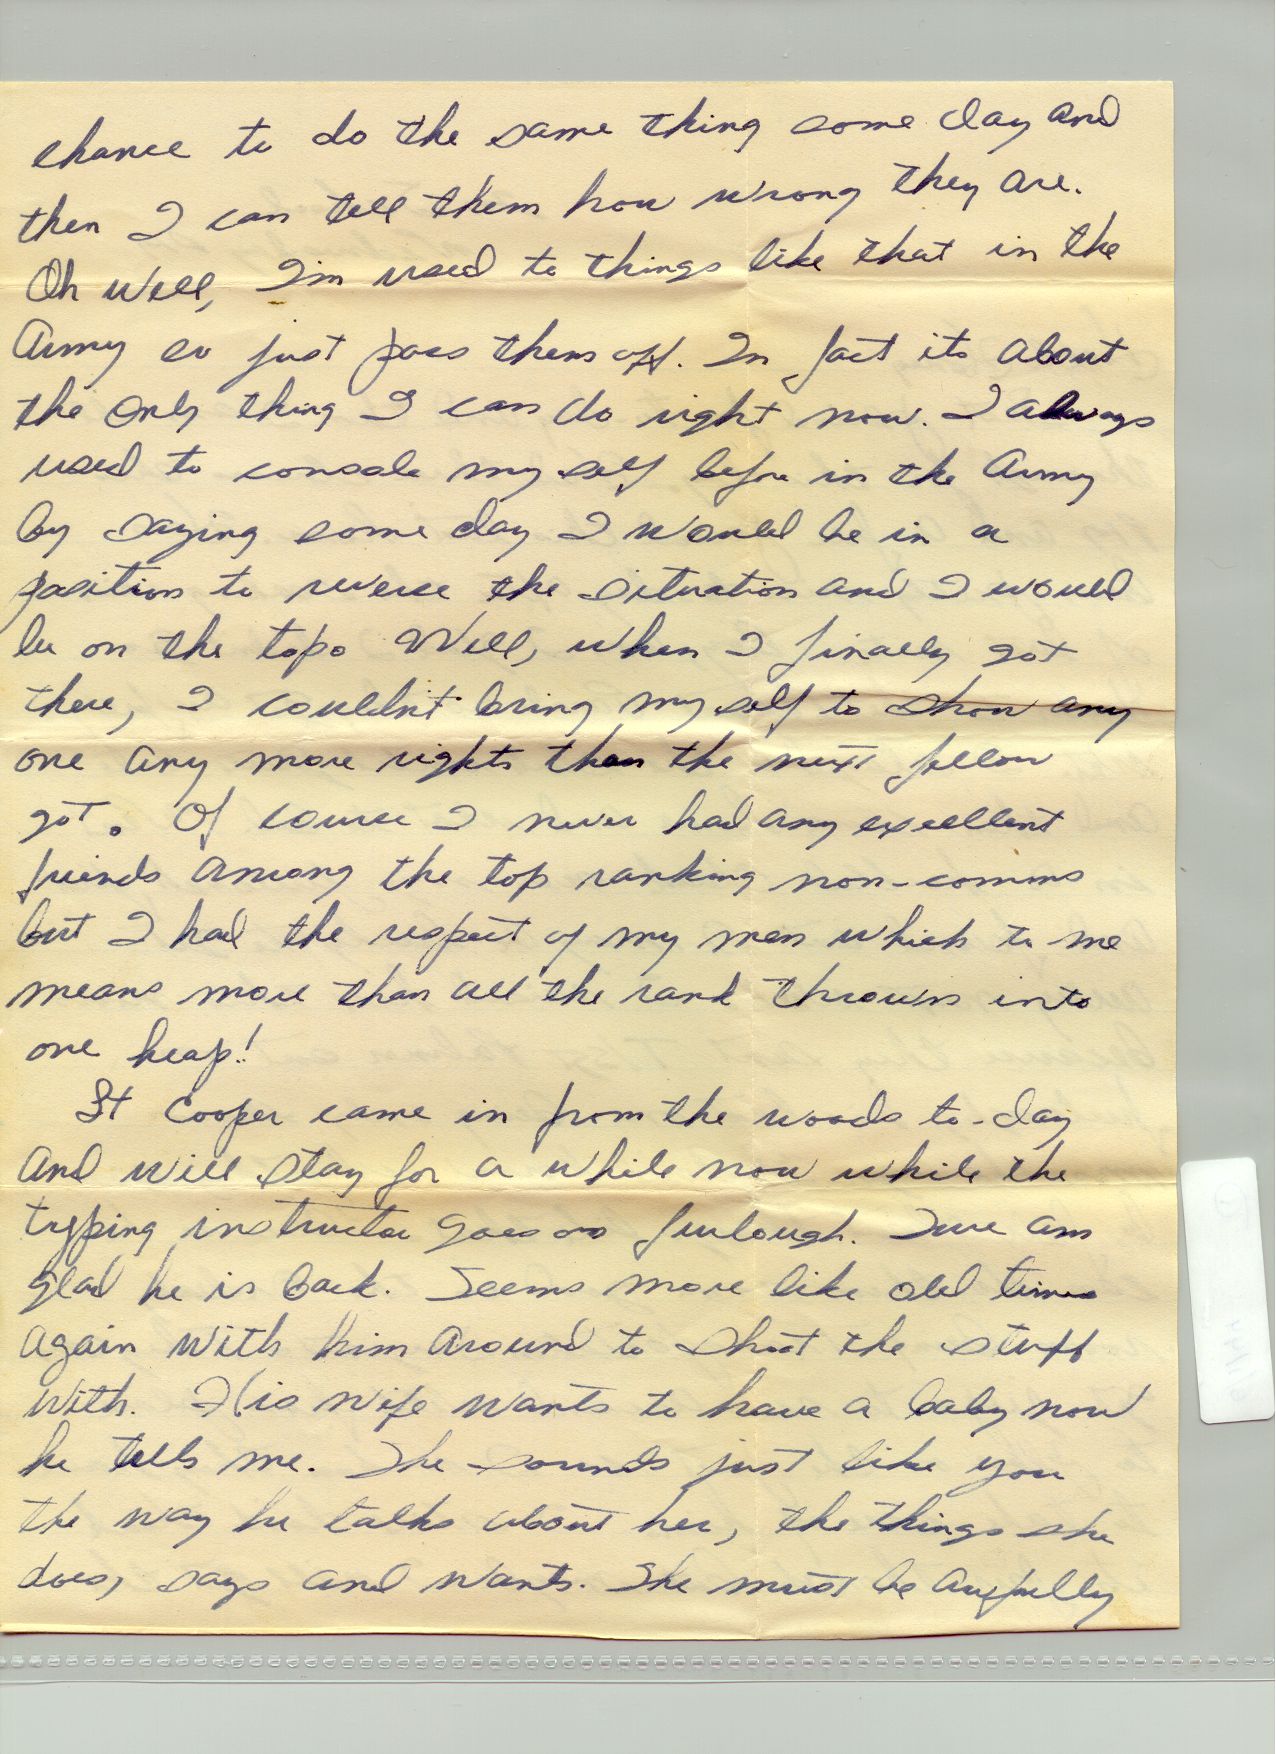 chance to do the same thing some day and
then I can tell them how wrong they are.
Oh well, I'm used to things like that in the
Army so just pass them off. In fact its about
the only thing I can do right now. I always
used to console my self before in the Army
by saying some day I would be in a
position to reverse the situation and I would
be on the top. Well, when I finally got
there, I couldn't bring my self to show any
one any more rights than the next fellow
got. Of course I never had any excellent
friends among the top ranking non-comms
but I had the respect of my men which to me
means more than all the rank thrown into
one heap!
Cooper came in from the woods to-day
and will stay for a while now while the
typing instructor goes on furlough. Sure am
glad he is back. Seems more like old times
again with him around to shoot the stuff
with. His wife wants to have a baby now
he tells me. She sounds just like you
the way he talks about her, the things she
does, says and wants. She must be awfully